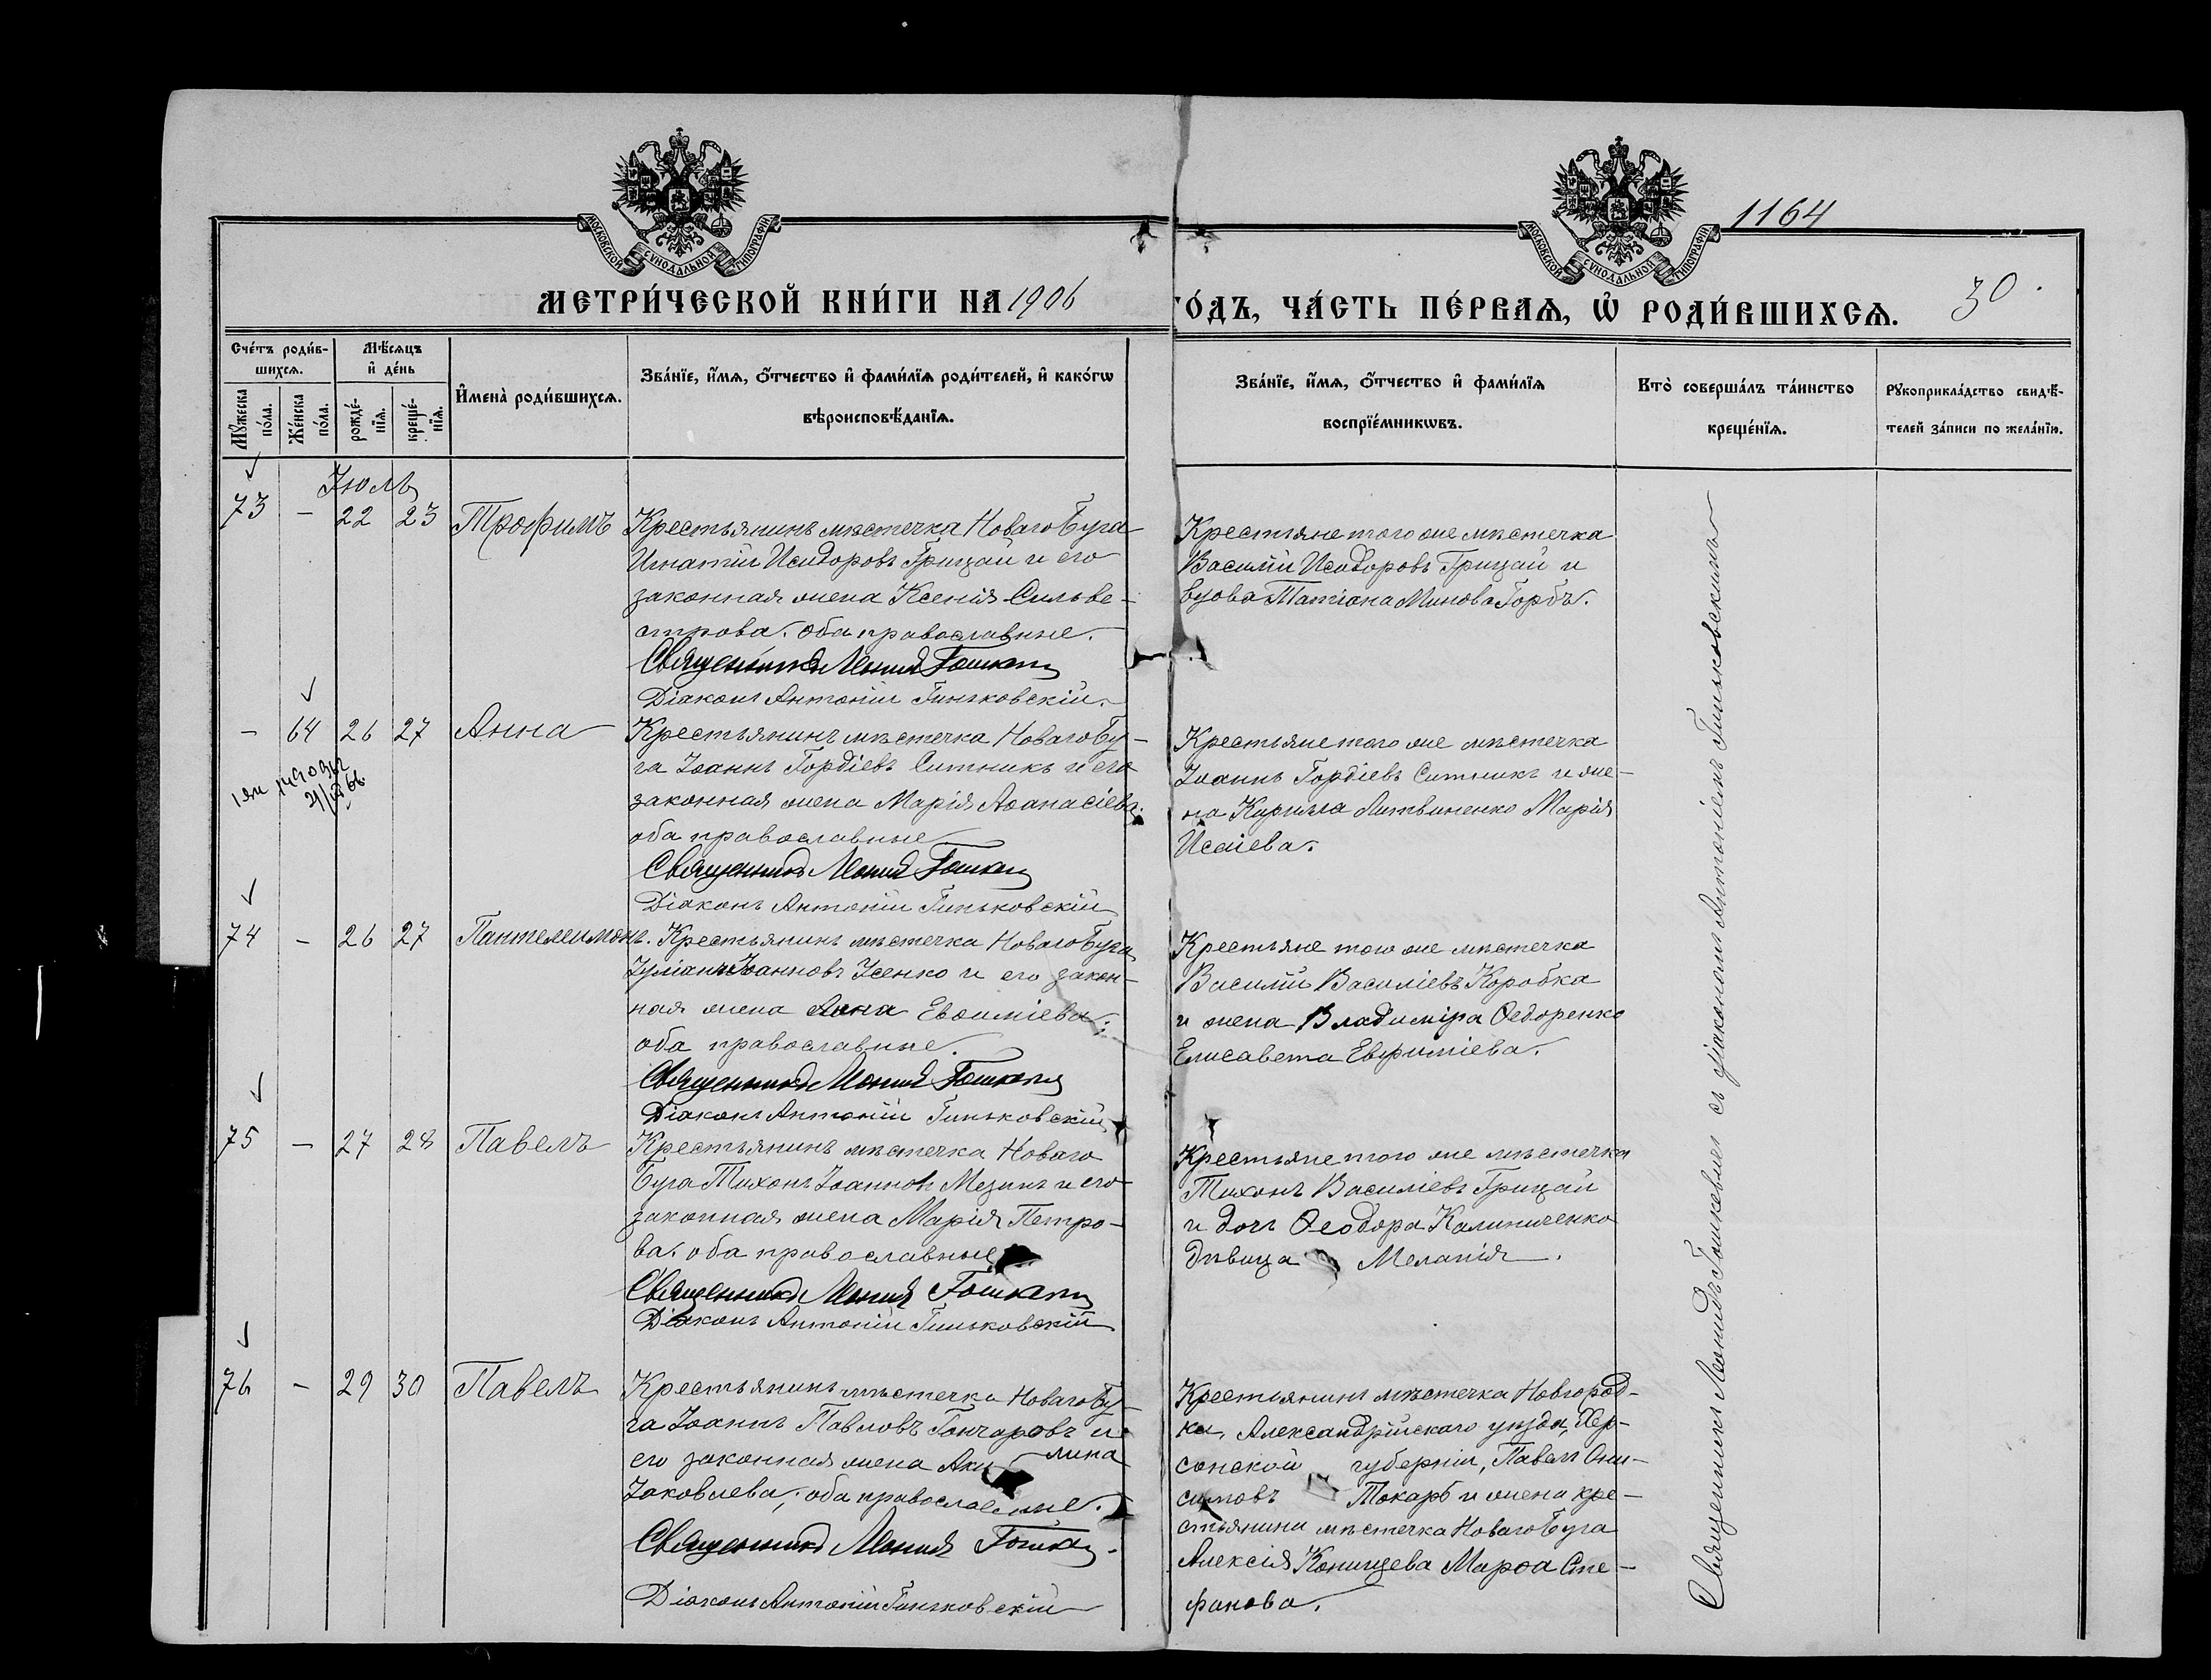 МОСКОВСКОЙ СУНОДАЛЬНОЙ ТИПОГРАФІИ
МОСКОВСКОЙ СУНОДАЛЬНОЙ ТИПОГРАФІИ
1164
МЕТРИ́ЧЕСКОЙ КНИ́ГИ НА 1906
ГО́ДЪ, ЧА́СТЬ ПЕ́РВАѦ, Ѡ РОДИ́ВШИХСѦ.
30.
Сче́тъ роди́в-
шихсѧ.
Мѣ́сѧцъ
и҆ де́нь
Мꙋ́жеска
по́ла.
Же́нска
по́ла.
рожде́-
нїѧ.
креще́-
нїѧ.
И҆мена̀ роди́вшихсѧ.
Зва́нїе, и҆́мѧ, ѻ҆́тчество и҆ фами́лїѧ роди́телей, и҆ како́гѡ
вѣроисповѣ́данїѧ.
Зва́нїе, и҆́мѧ, ѻ҆́тчество и҆ фами́лїѧ
воспрїе́мникѡвъ.
Кто̀ соверша́лъ та́инство
креще́нїѧ.
Рꙋкоприкла́дство свидѣ́-
телей за́писи по жела́нїю.
Іюль
73 - 22 23 Трофимъ
Крестьянинъ мѣстечка Новаго Буга
Игнатій Исидоровъ Грицай и его
законная жена Ксенія Сильве-
строва. оба православные.
Священникъ Леонид Гошкев
Діаконъ Антоній Гиньковскій.
Крестьяне того же мѣстечка
Василій Исидоровъ Грицай и
вдова Татіана Минова Горбъ.
- 64 26 27 Анна
Крестьянинъ мѣстечка Новаго Бу-
га Іоаннъ Гордіевъ Ситникъ и его
законная жена Марія Аѳанасіева.
оба православные
Священникъ Леонид Гошкев
Діаконъ Антоній Гиньковскій
Крестьяне того же мѣстечка
Іоаннъ Гордіевъ Ситникъ и же-
на Кирилла Литвиненко Марія
Исаіева.
74 - 26 27 Пантелеимонъ.
Крестьянинъ мѣстечка Новаго Буга
Іуліанъ Іоанновъ Усенко и его закон-
ная жена Анна Евѳиміева;
оба православные.
Священникъ Леонид Гошкев
Діаконъ Антоній Гиньковскій
Крестьяне того же мѣстечка
Василій Василіевъ Коробка
и жена Владиміра Ѳедоренко
Елисавета Евфиміева.
75 - 27 28 Павелъ
Крестьянинъ мѣстечка Новаго
Буга Тихонъ Іоаннов Мезинъ и его
законная жена Марія Петро-
ва. оба православные
Священникъ Леонид Гошкев
Діаконъ Антоній Гиньковскій
Крестьяне того же мѣстечка
Тихонъ Василіевъ Грицай
и дочь Ѳеодора Калиниченко
дѣвица Меланія.
76 - 29 30 Павелъ
Крестьянинъ мѣстечка Новаго Бу-
га Іоаннъ Павловъ Гончаровъ и
его законная жена Аки-лина
Іаковлева; оба православные.
Священникъ Леонид Гошкев
Діаконъ Антоній Гиньковскій
Крестьянинъ мѣстечка Новгород-
ка, Александрійскаго уѣзда, Хер-
сонской губерніи, Павелъ Они-
симовъ Токарь и жена кре-
стьянина мѣстечка Новаго Буга
Алексія Конищева Марѳа Сте-
фанова.
Священникъ Леонидъ Гошкевич съ діакономъ Антоніемъ Гиньковскимъ